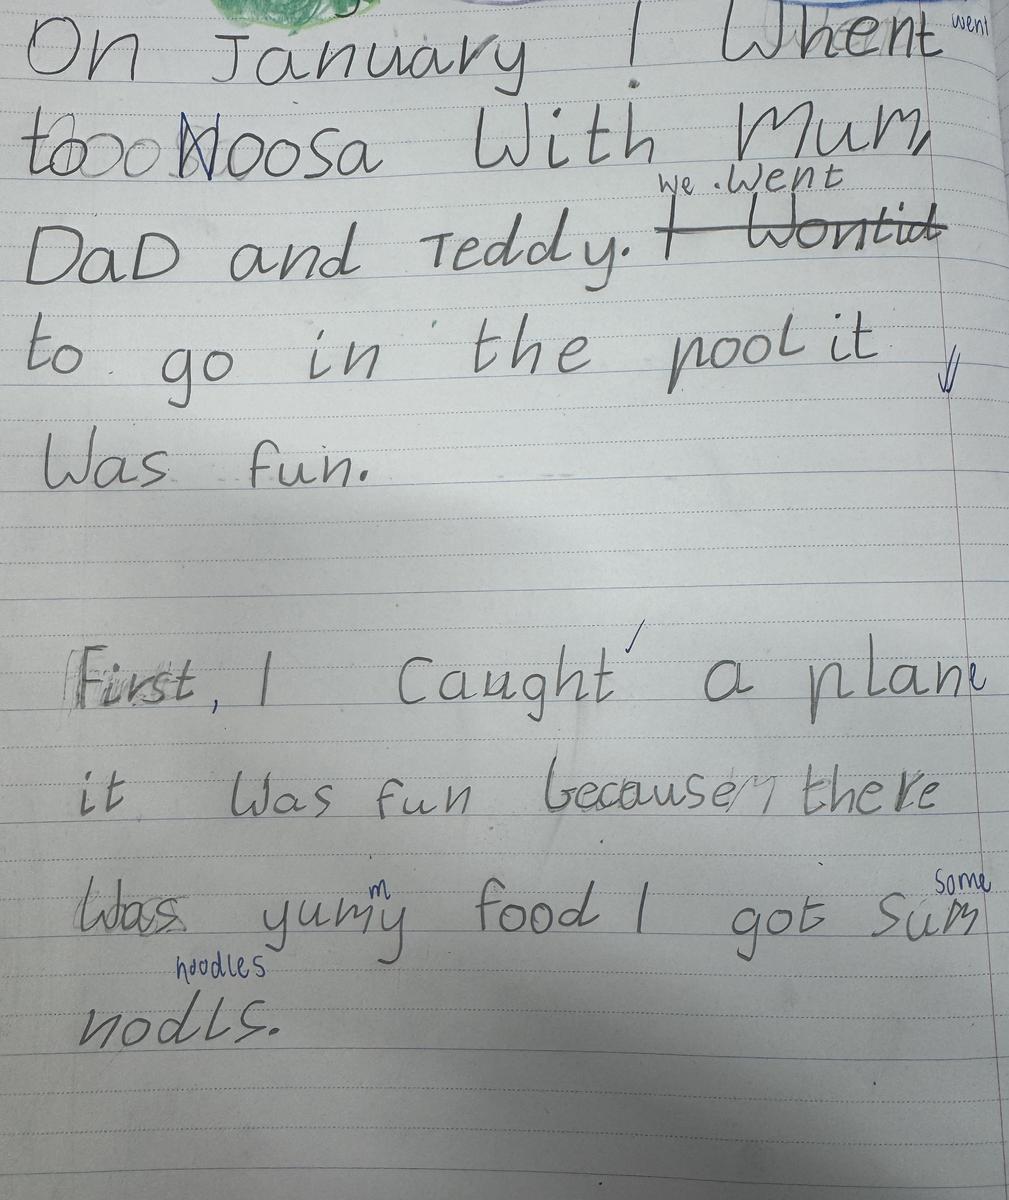 On January I Whent went
to Noosa With Mum,
we. Went
DaD and Teddy. I Wontid
to go in the pool it
Was fun.
First, I Caught a plane
it Was fun because there
some
m
Was yumy food I got sum
noodles
nodls.